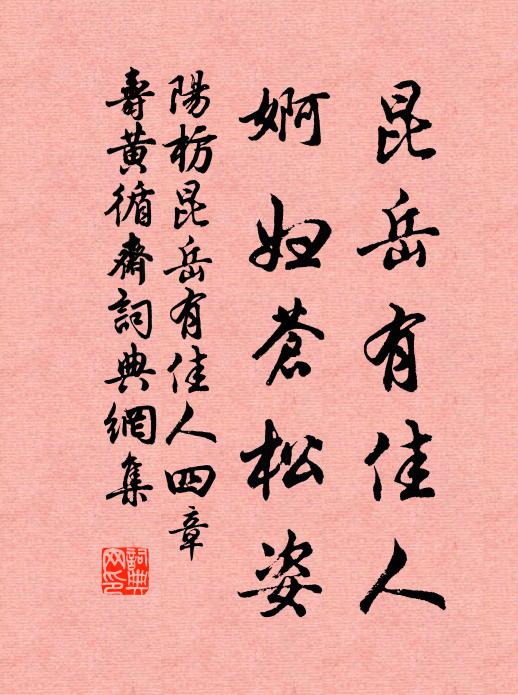 昆岳有佳人
婀妞蒼松姿
陽枋昆岳有佳人四章
壽黃循齋詞典網集
詞典
网印